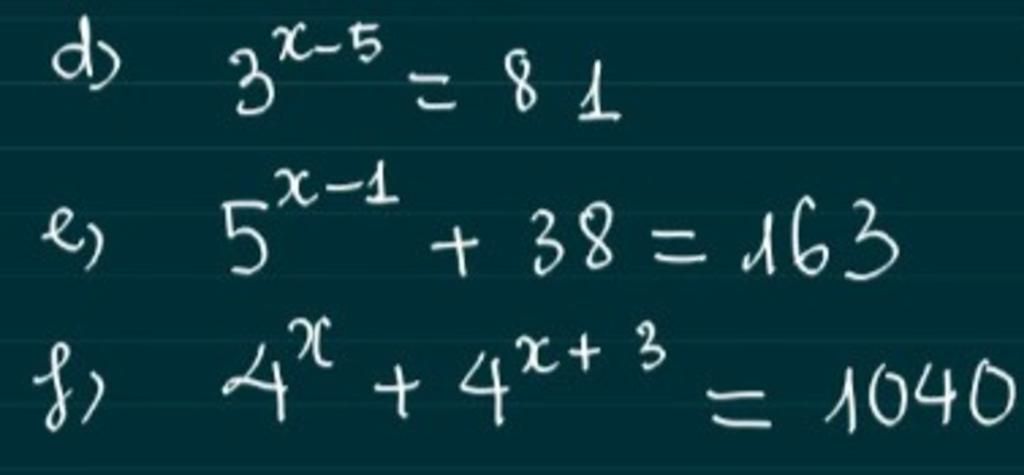 d) 3^{x-5} = 81
e) 5^{x-1} + 38 = 163
f) 4^x + 4^{x+3} = 1040